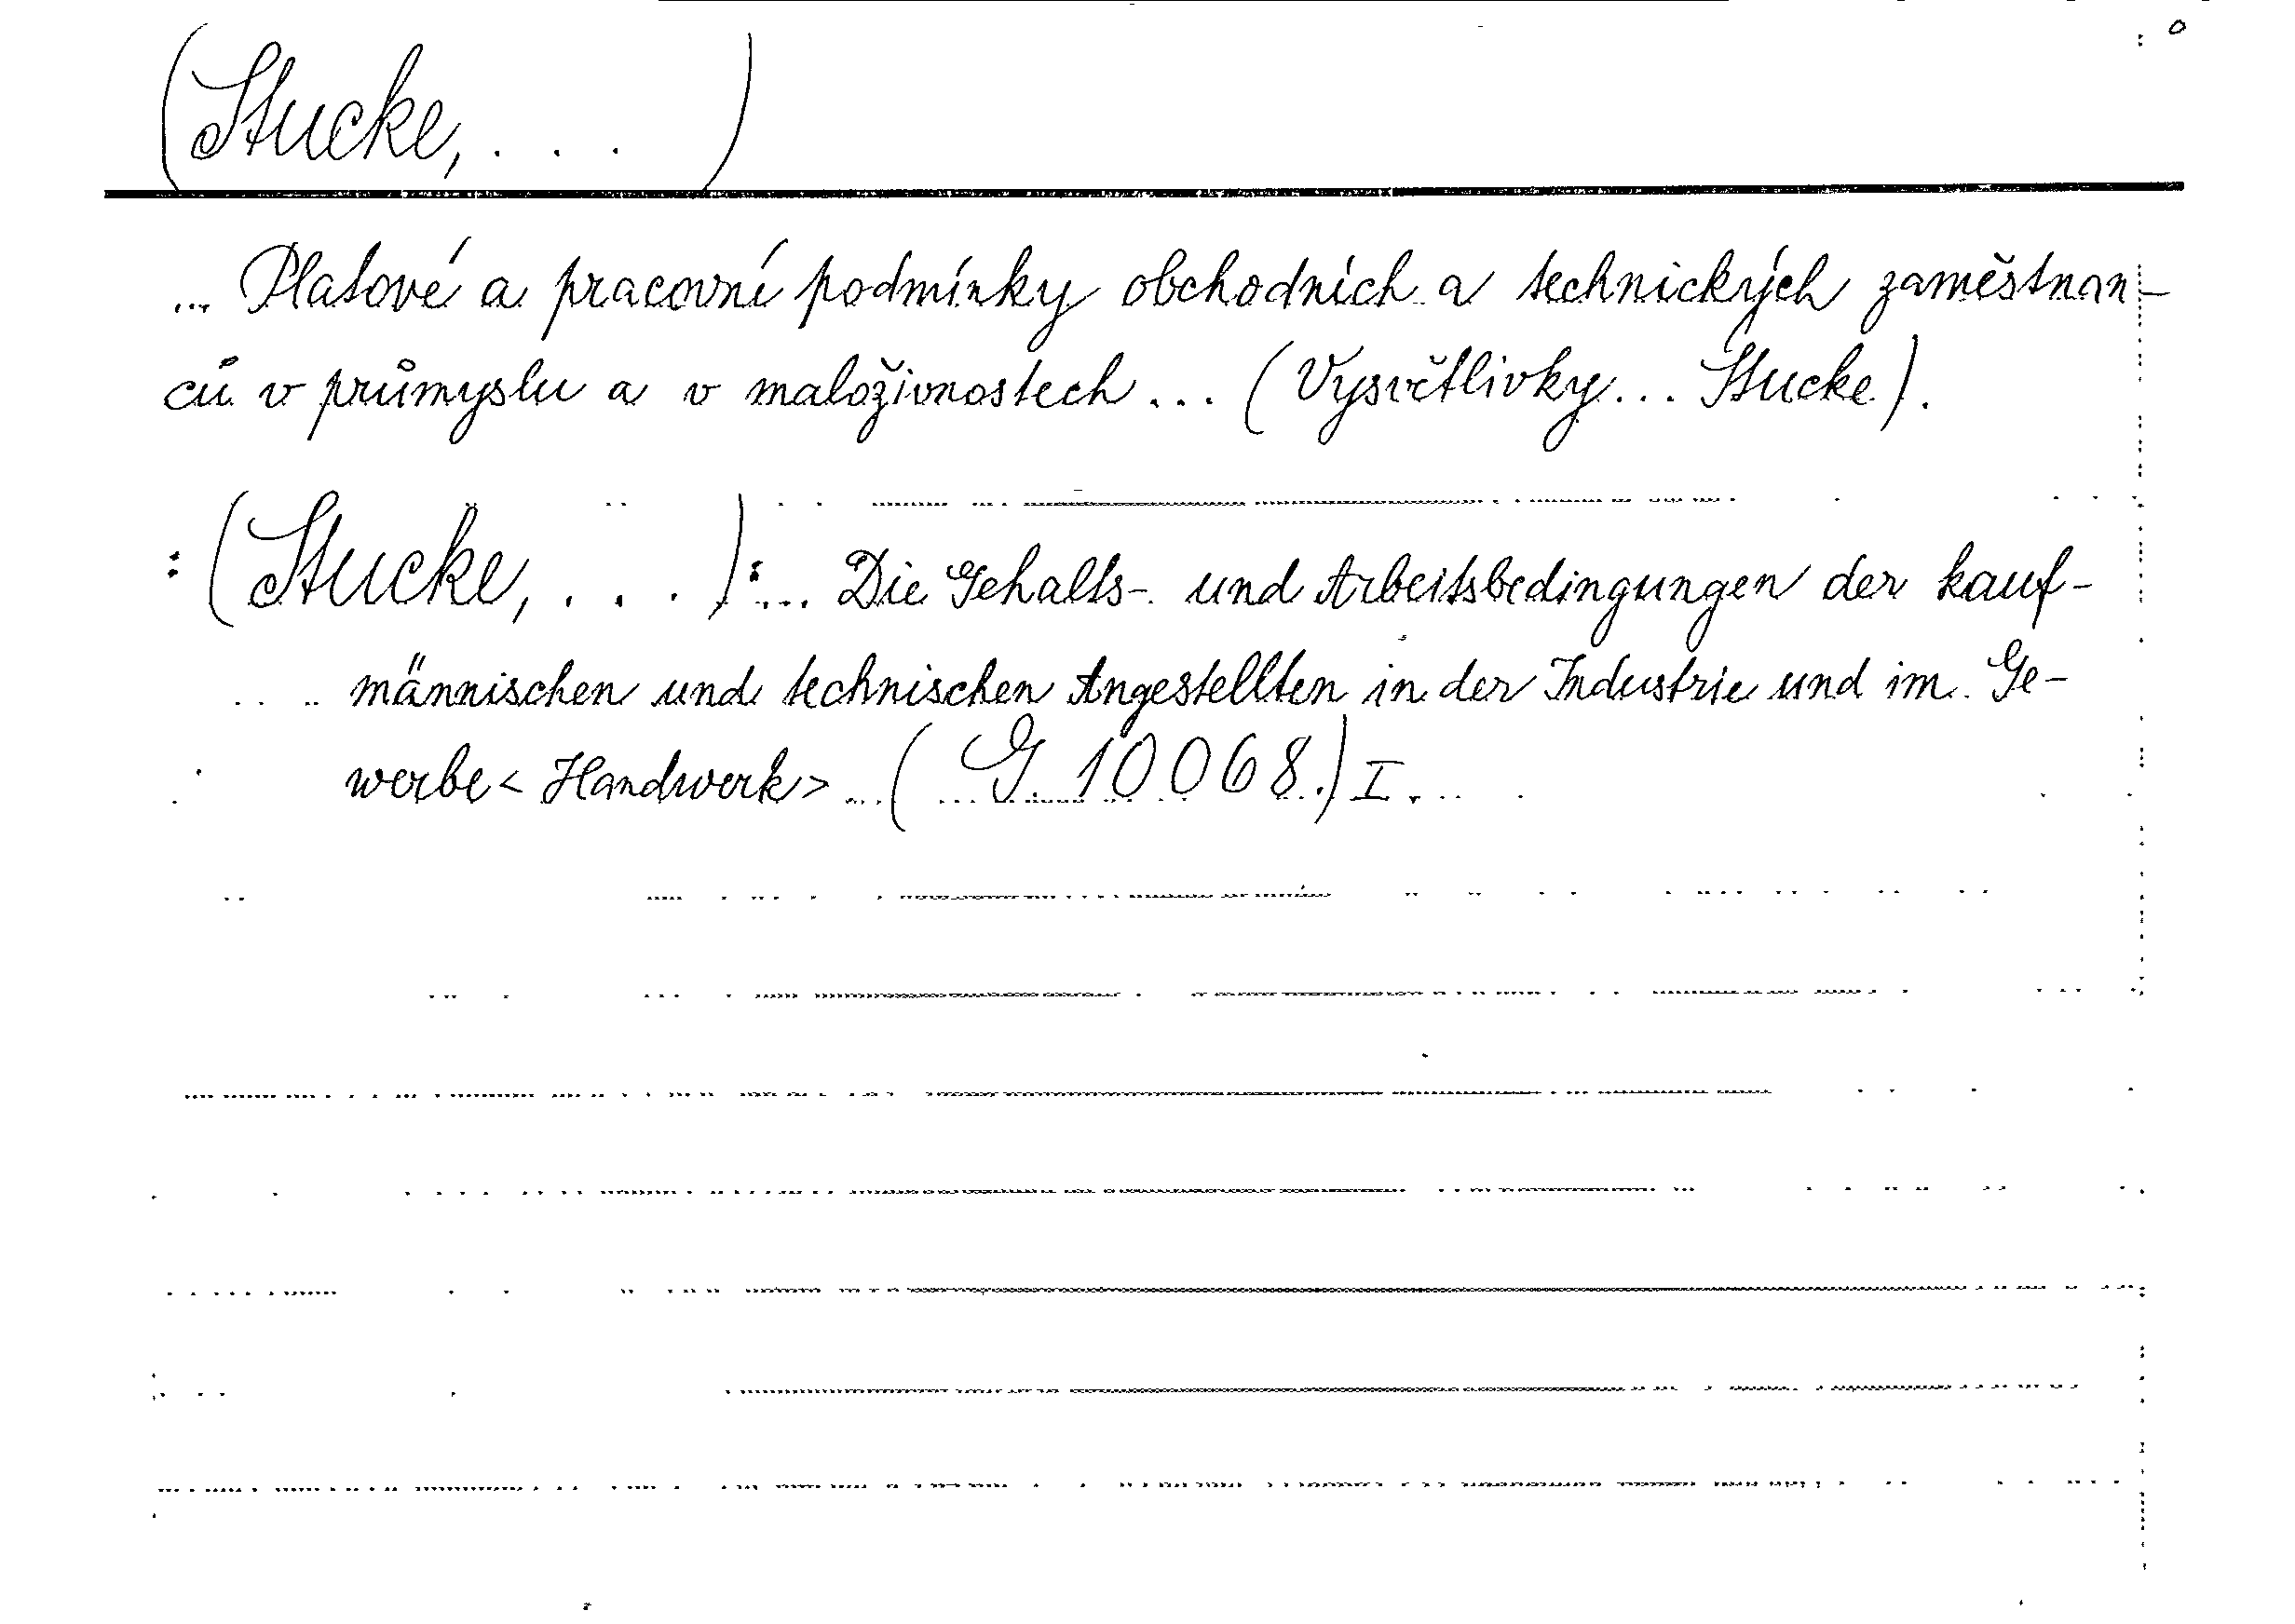 (Stucke, . . . )
... Platové a pracovní podmínky obchodních a technických zaměstnan-
ců v průmyslu a v maloživnostech ... (Vysvětlivky ... Stucke).
: (Stucke, . . . ): ... Die Gehalts- und Arbeitsbedingungen der kauf-
männischen und technischen Angestellten in der Industrie und im Ge-
werbe < Handwerk > ... ( G 10068.) I.